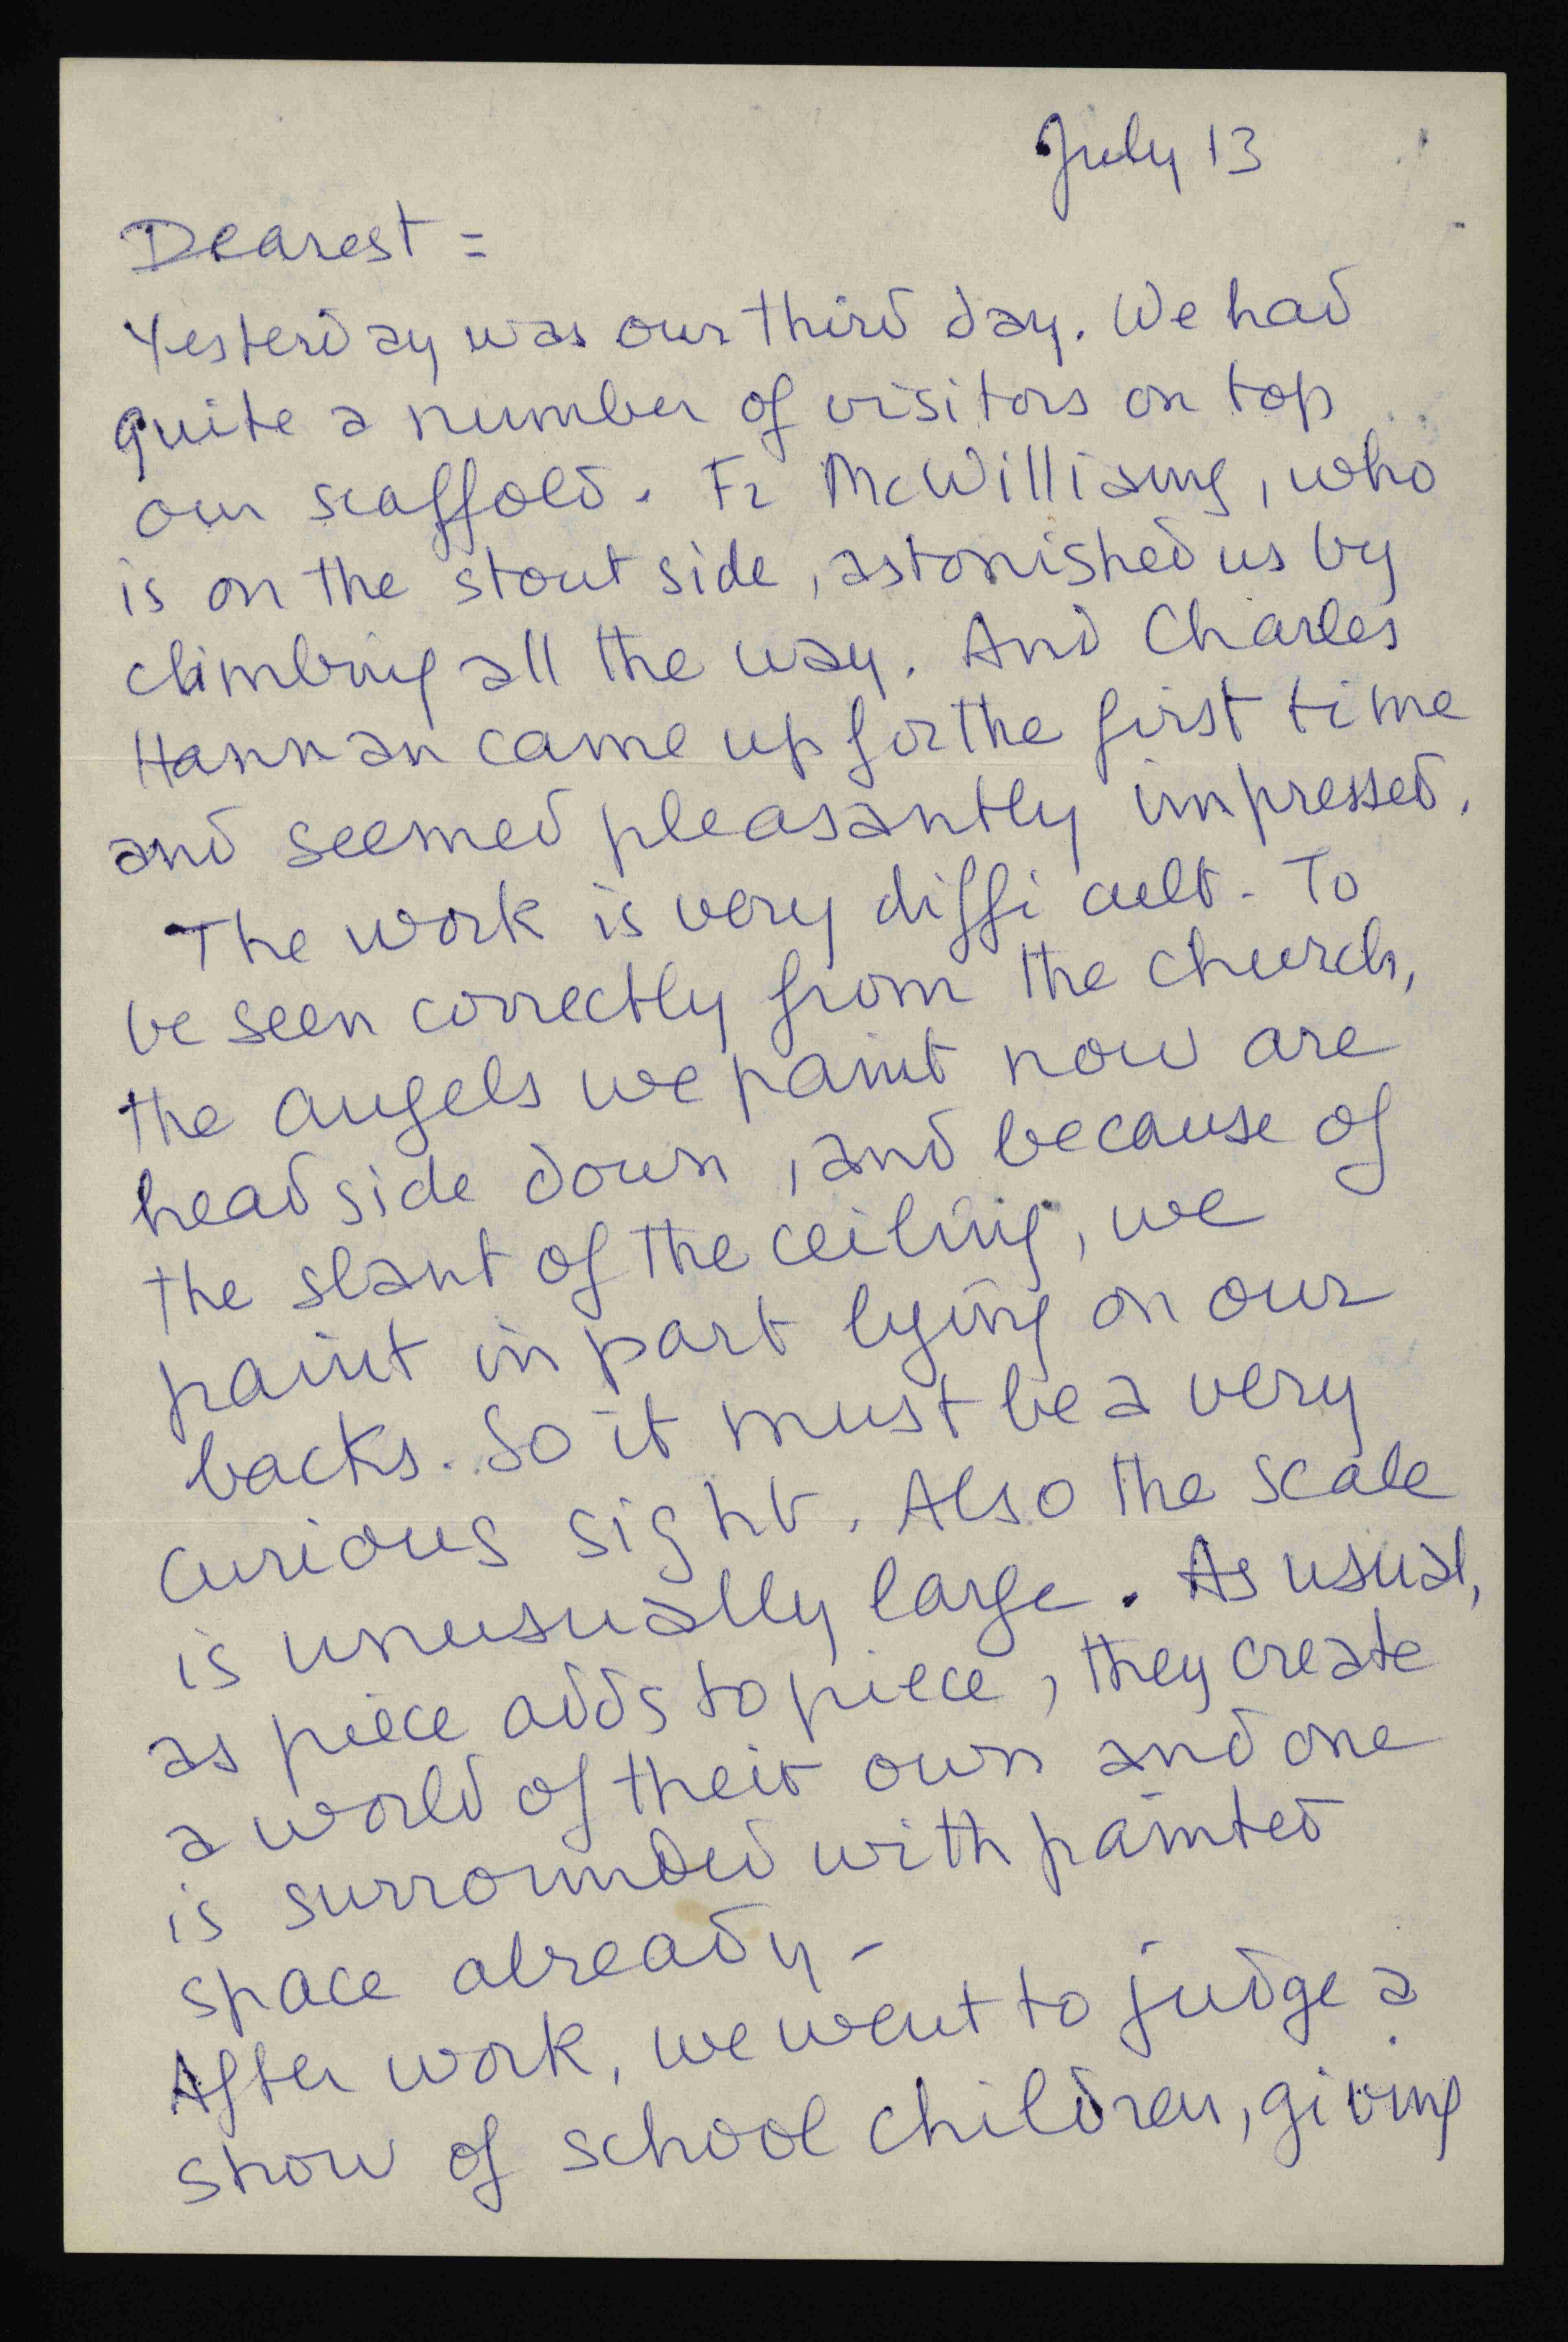 July 13
Dearest =
Yesterday was our third day. We had
quite a number of visitors on top
our scaffold. Fr McWilliams, who
is on the stout side, astonished us by
climbing all the way. And Charles
Hannan came up for the first time
and seemed pleasantly impressed.
The work is very difficult. To
be seen correctly from the church,
the angels we paint now are
head side down, and because of
the slant of the ceiling, we
paint in part lying on our
backs. So it must be a very
curious sight. Also the scale
is unusually large. As usual,
as piece adds to piece, they create
a world of their own and one
is surrounded with painted
space already -
After work, we went to judge a
show of school children, giving